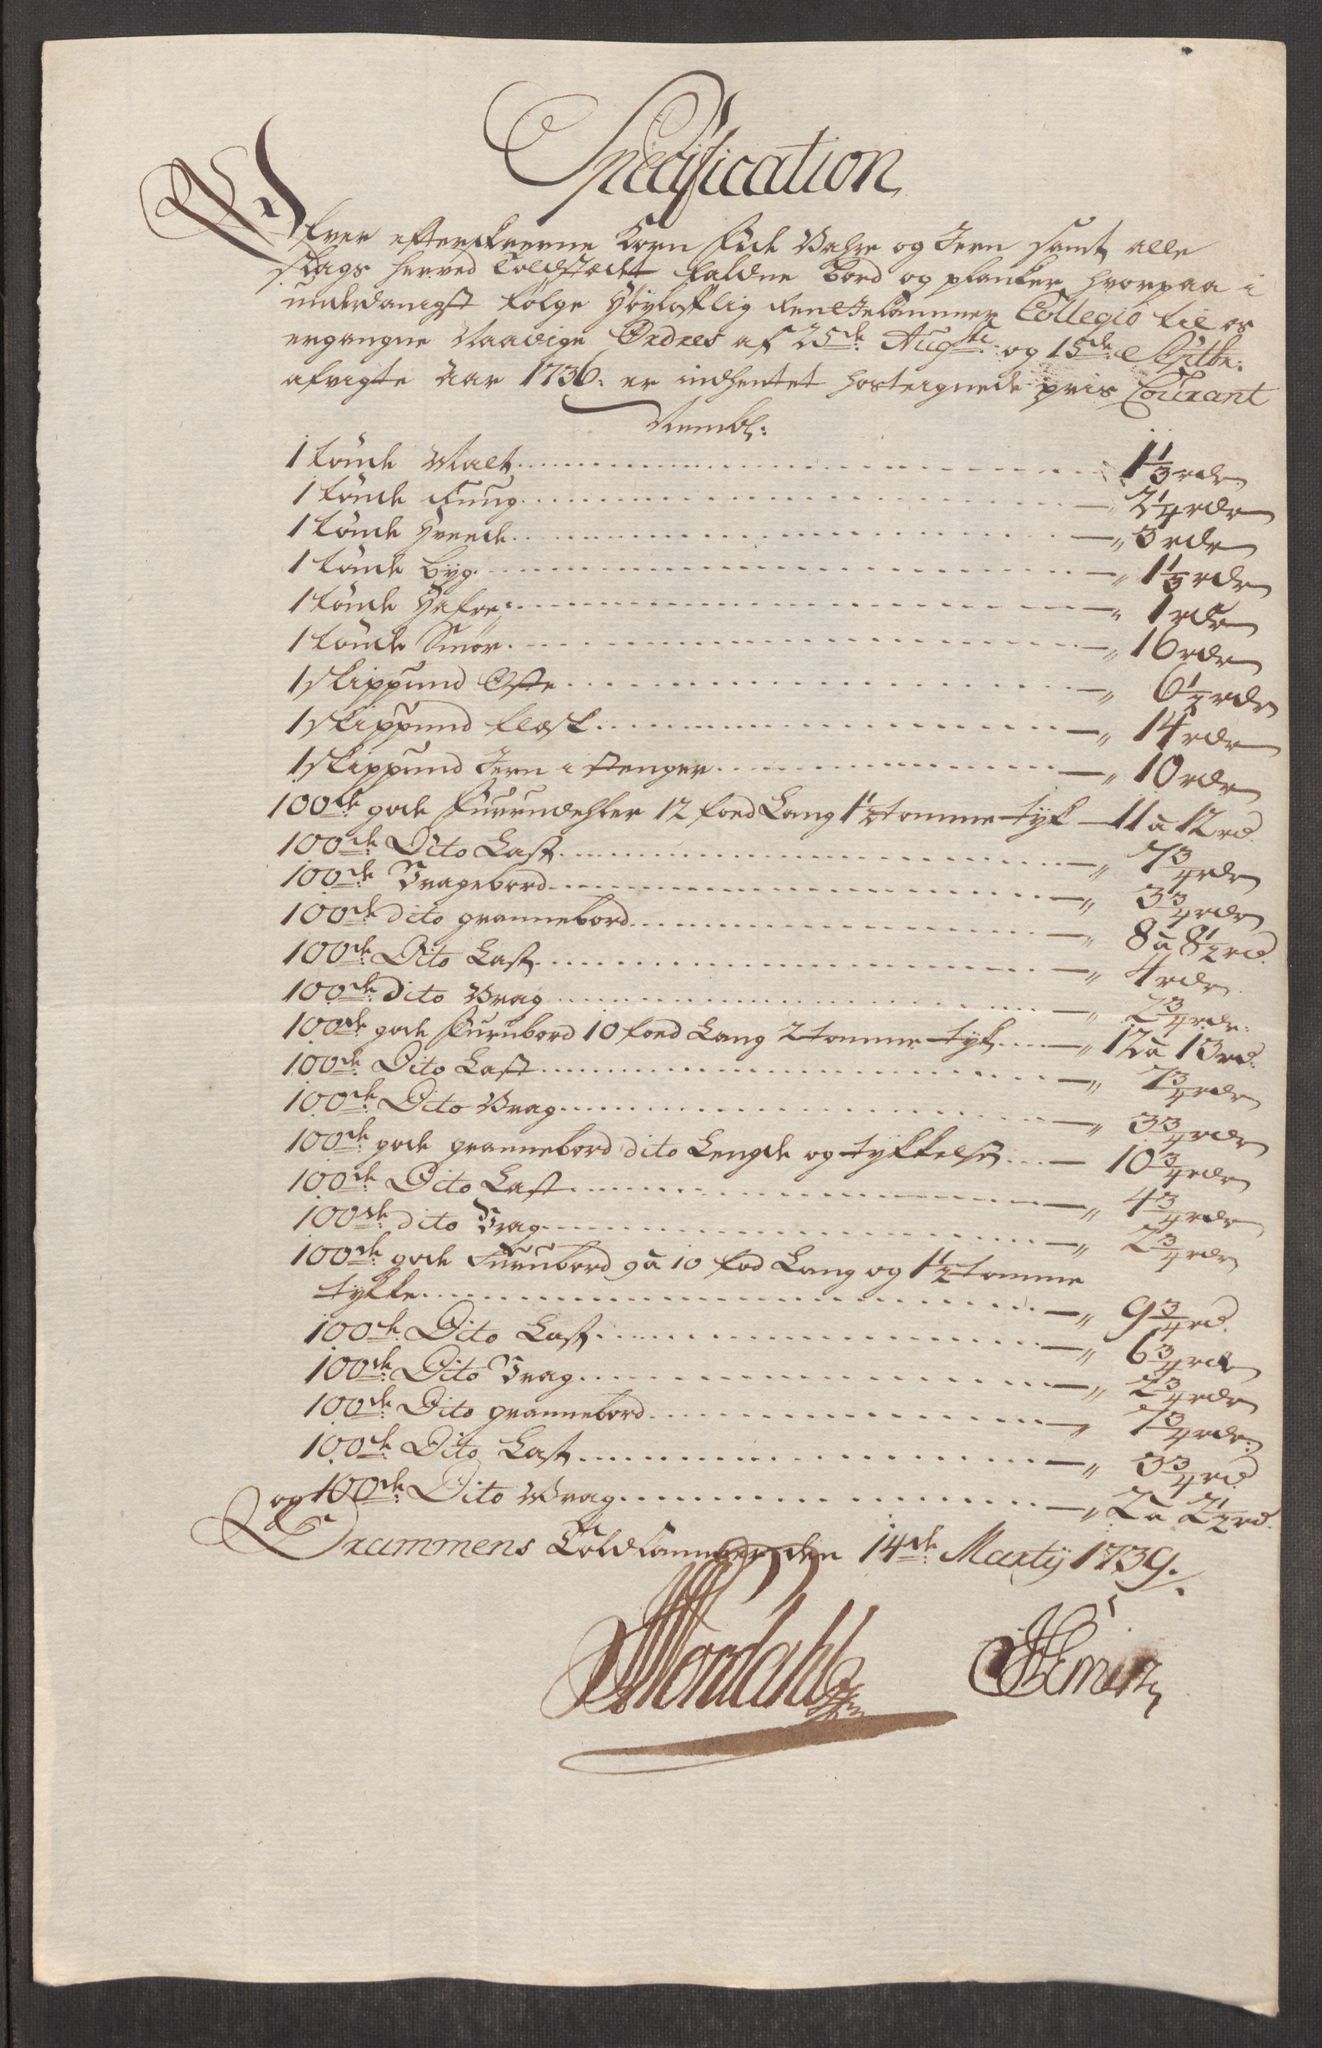 Specification
Ofver efterskrevne Korn Fede Vahre og Jern samt alle
slags herved Toldstædet faldne Bord og planker hvorpaa i
underdanigst følge Høyloflig RenteCammer Collegio til os
ergangne Naadige Ordres af 25de Augusti og 15de
afvigte aar 1736 er indhentet hosteignede pris Courant
Neml:
1 tønde Malt 1 1/3 rdr
1 tønde Rug 2 1/4 rdr
1 tønde Hvede 3 rdr
1 tønde Byg 1 1/3 rdr
1 tønde Hafre 1 rdr
1 tønde Smør 16 rdr
1 skippund Oste 6 1/2 rdr
1 skippund flesk 14 rdr
1 skippund Jern i Stenger 10 rdr
100de gode Furrudehler 12 foed Lang 1 1/2 tomme tyk 11 a 12 rd
100de Dito Last 7 3/4 rdr
100de Vragebord 3 3/4 rdr
100de dito grannebord 8 a 8 1/2 rd
100de Dito Last 4 rdr
100de dito Vrag 2 3/4 rdr
100de gode Furubord 10 foed Lang 2 tomme tyk 12 a 13 rd
100de Dito Last 7 3/4 rdr
100de Dito Vrag 3 3/4 rdr
100de gode grannebord dito Lengde og tykkelse 10 3/4 rdr
100de Dito Last 4 3/4 rdr
100de dito Vrag 2 3/4 rdr
100de gode Furubord 9 a 10 fod Lang og 1 1/2 tomme
tykke 9 3/4 rd
100de Dito Last 6 3/4 rdr
100de Dito Vrag 2 3/4 rdr
100de Dito grannebord 7 3/4 rdr
100de Dito Last 3 3/4 rd
og 100de Dito Vrag 2 a 2 1/2 rd
Drammens Toldkammer den 14de Martÿ 1739.